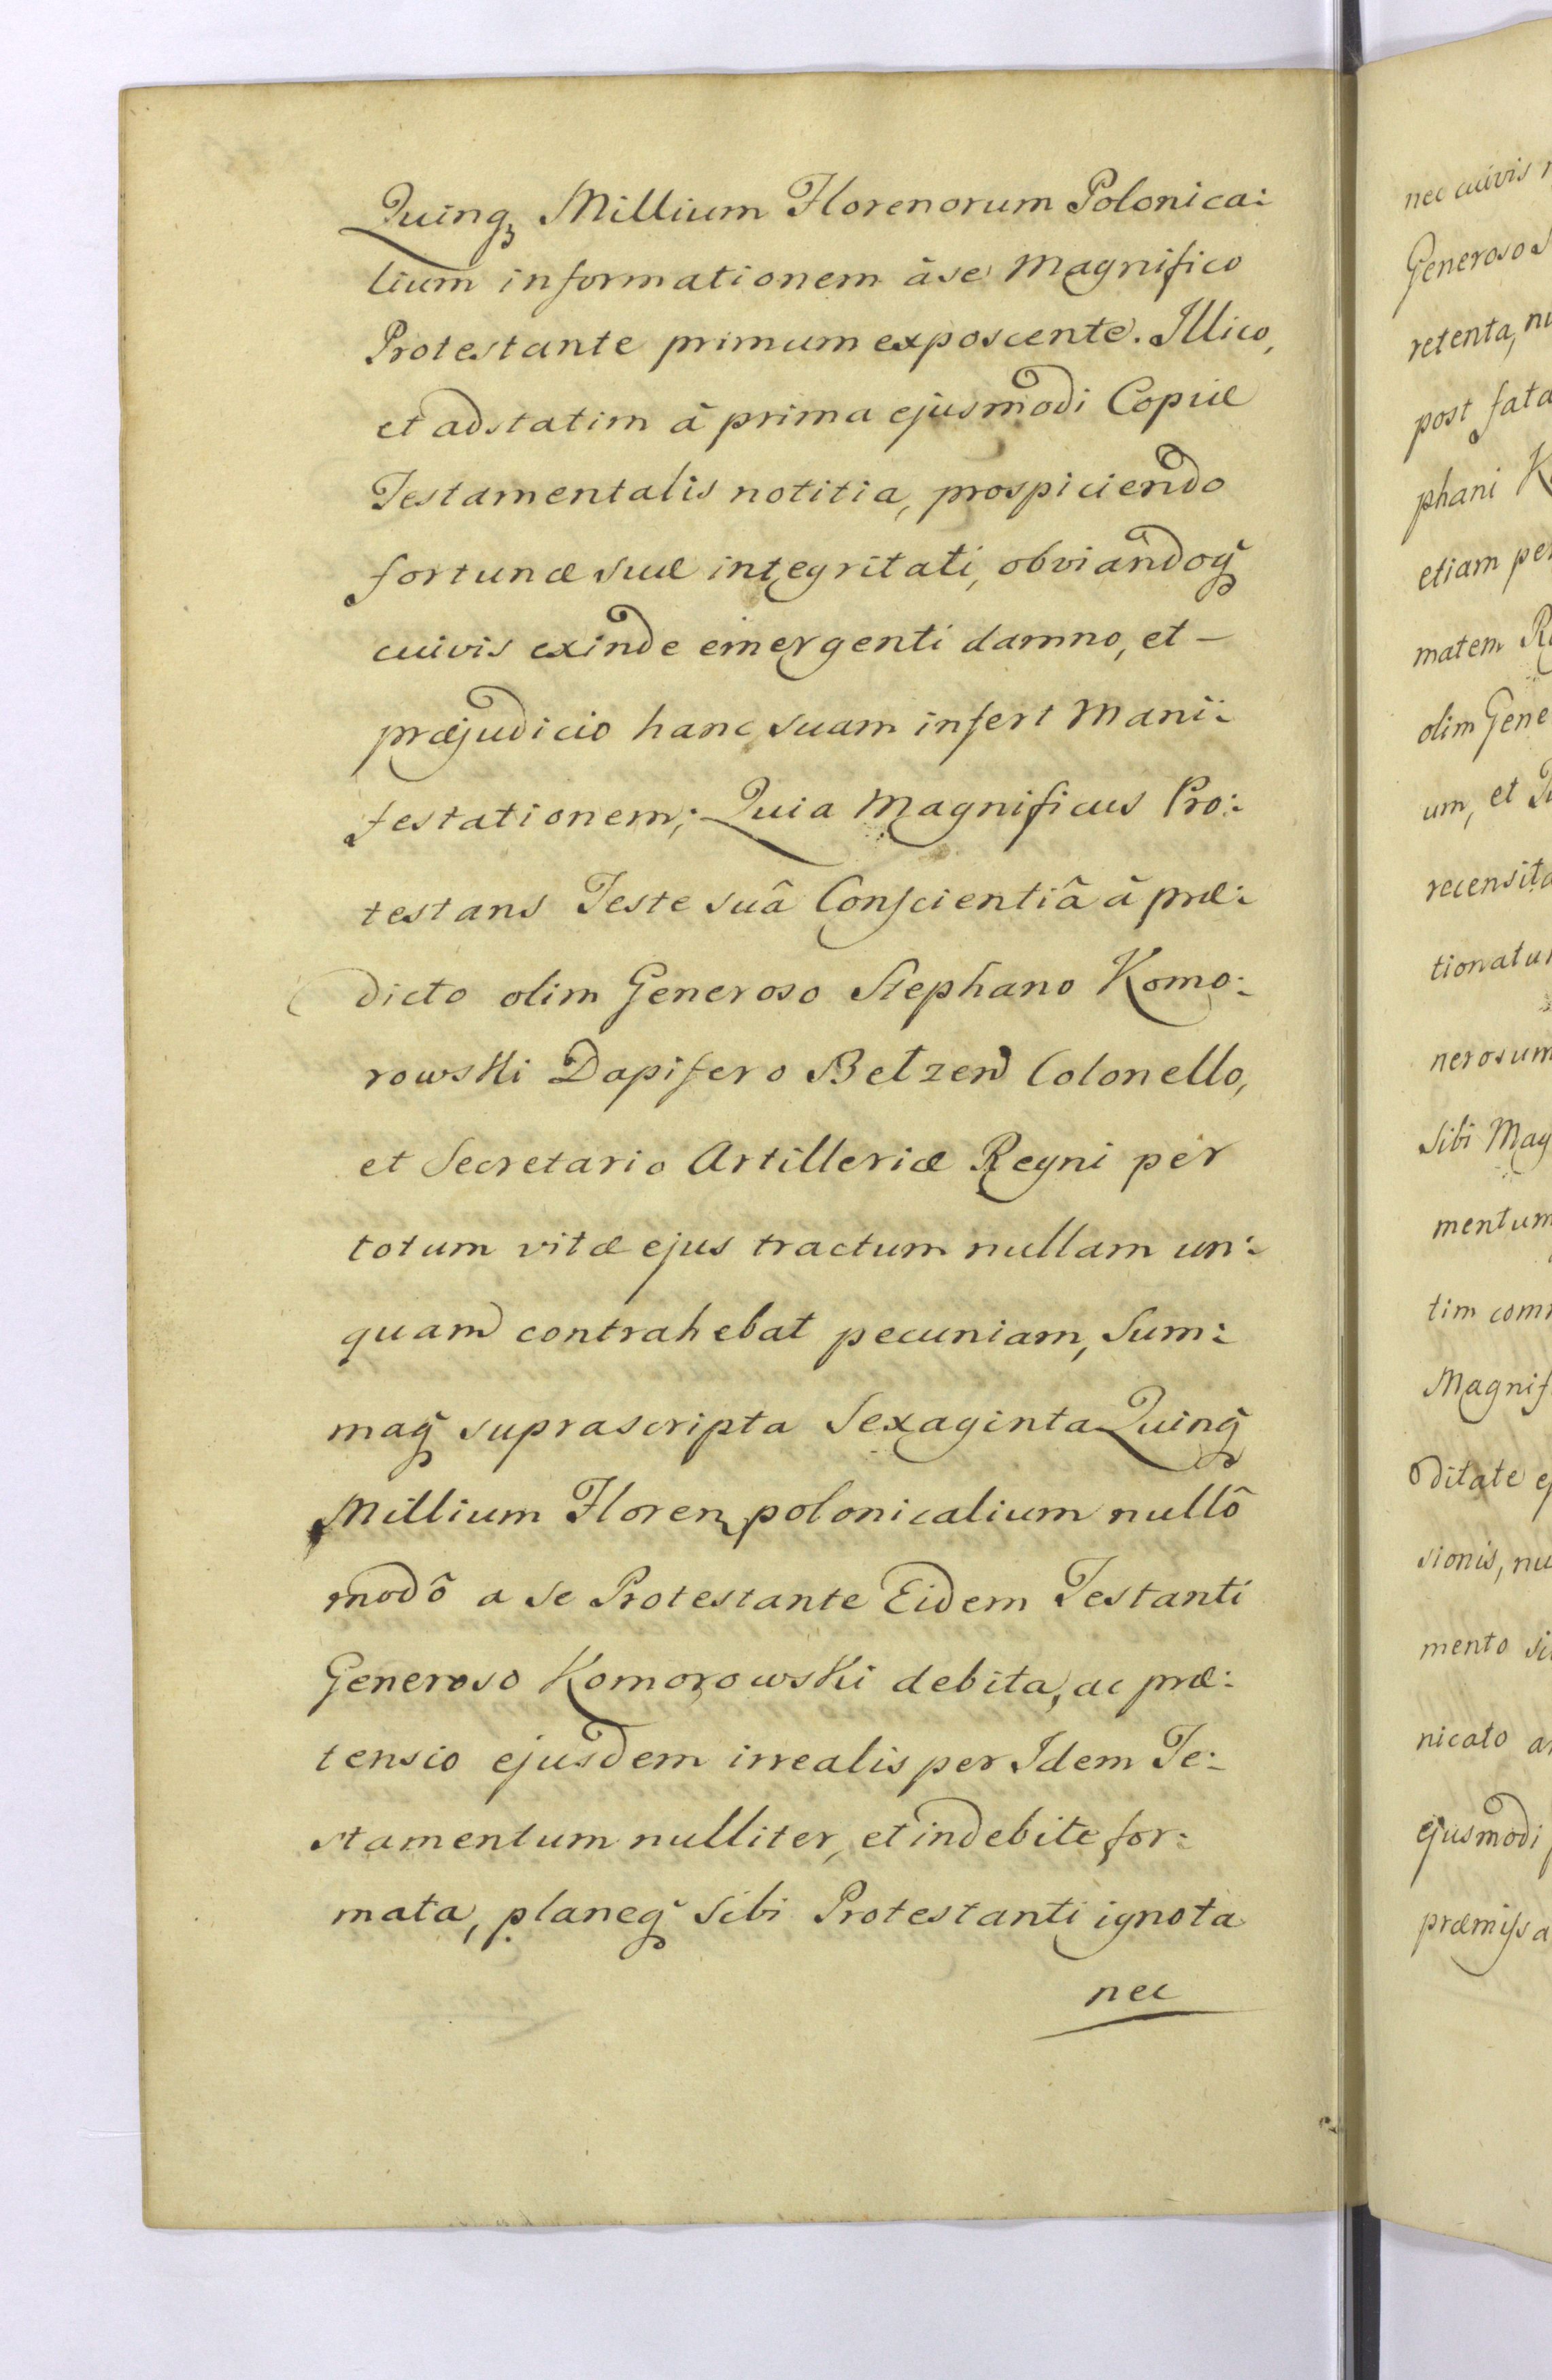 Quinq; Millium Florenorum Polonica:
lium informationem à se Magnifico
Protestante primum exposcente. Illico,
et adstatim à prima ejusmodi Copiæ
Testamentalis notitia, prospiciendo
fortunæ suæ integritati, obviandoq̃
cuivis exinde emergenti damno, et –
præjudicio hanc suam infert Mani:
festationem; Quia Magnificus Pro:
testans Teste suâ Conscientiâ à præ:
dicto olim Generoso Stephano Komo:
rowski Dapifero Belzen Colonello,
et Secretario Artilleriæ Regni per
totum vitæ ejus tractum nullam un:
quam contrahebat pecuniam, Sum:
maq̃ suprascripta Sexaginta Quinq̃
Millium Floren polonicalium nullô
modô a se Protestante Eidem Testanti
Generoso Komorowski debita, ac præ:
tensio ejusdem irrealis per Idem Te:
stamentum nulliter, et indebite for:
mata, planeq̃ Sibi Protestanti ignota
nec
nec cuivis
Generoso
retenta,
post fata
phani
etiam
matem
olim Gene
um, et
recensita
tionatu
nerosum
Sibi Mag
mentum
tim com
Magnif
ditate
sionis, nu
mento
nicato
ejusmodi
præmissa